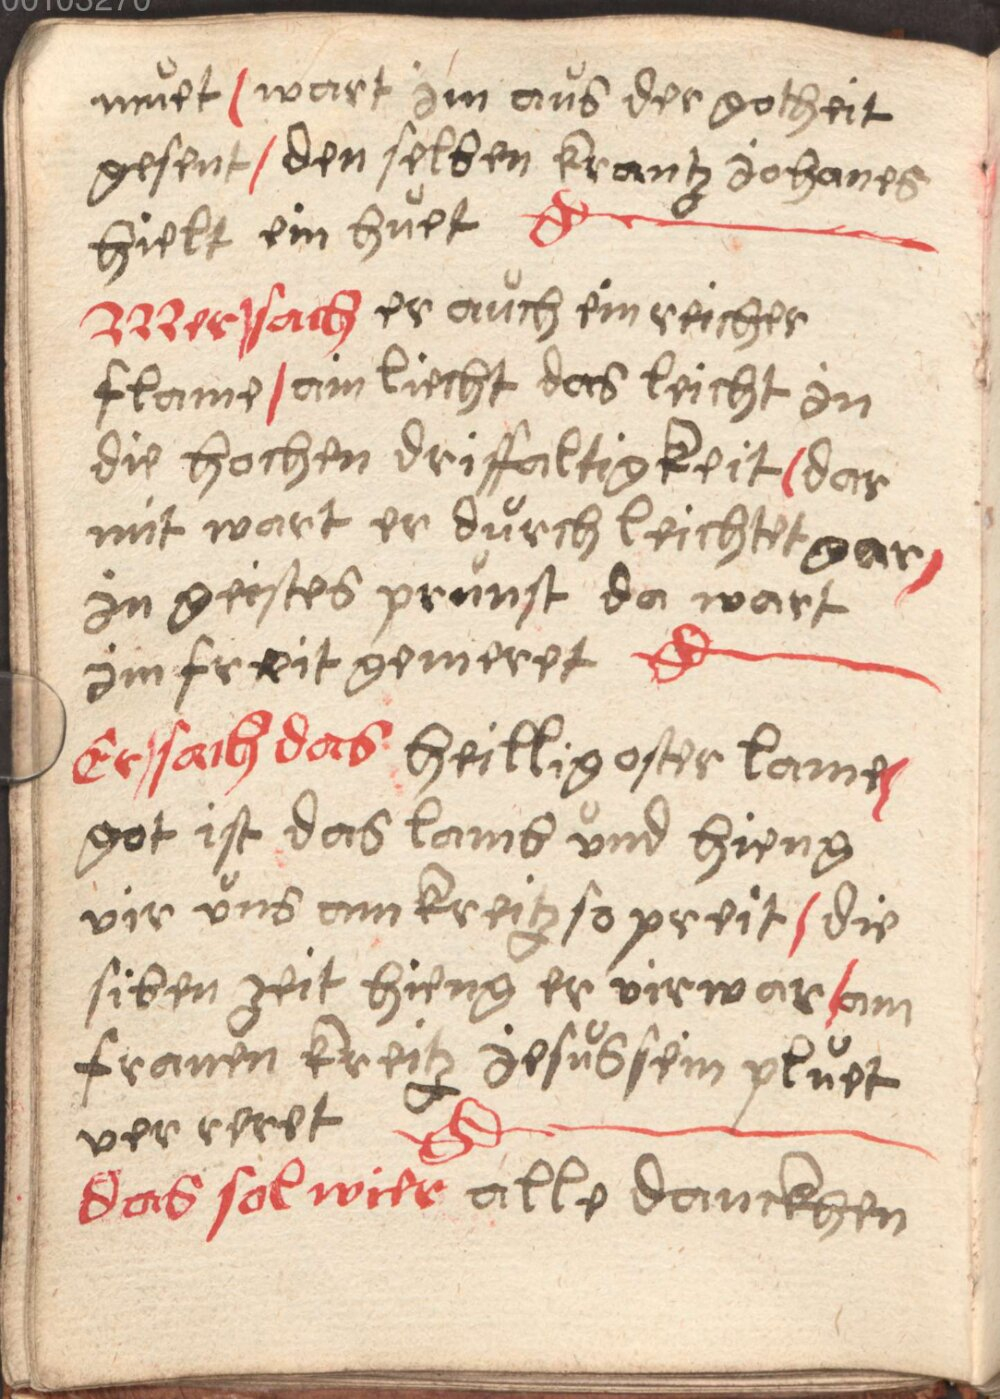 00103270
muet / wart im aus der gotheit
gesent / den selben krantz iohanes
hielt ein huet
Mer sach er auch ein reicher
flame / ain liecht das leicht in
die hochen driffaltigkeit / dar
mit wart er durch leichtet gar /
in geistes prunst da wart
im freit gemeret
Er sach das heillig oster lame /
got ist das lamb vnd hieng
vir vns am kreitz so preit / die
siben zeit hieng er vir war / am
franen kreitz iesus sein pluet
ver reret
das sol wier alle danckhen